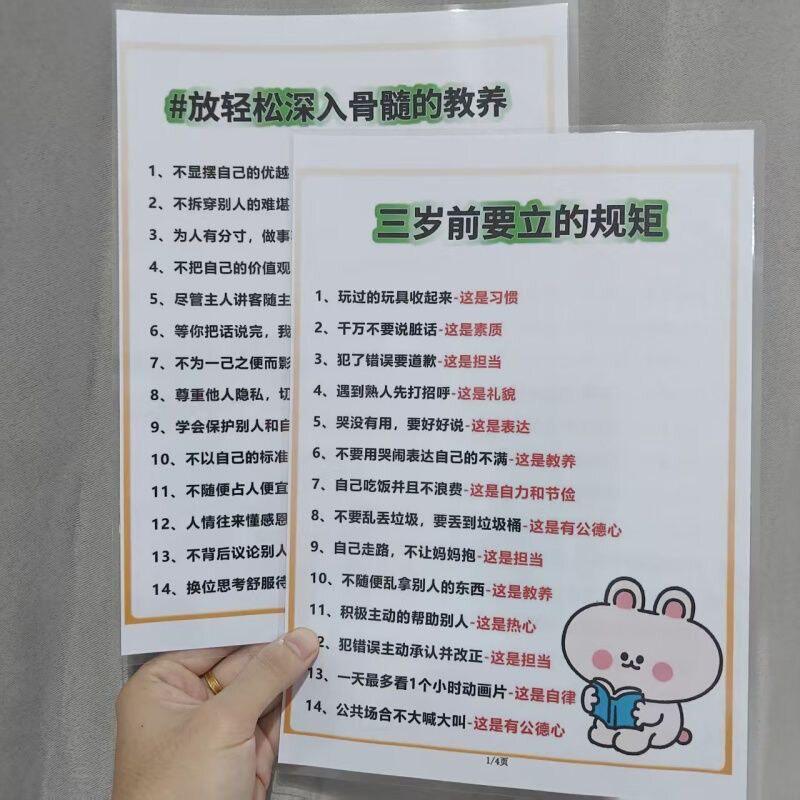 #放轻松深入骨髓的教养
1、不显摆自己的优越
2、不拆穿别人的难堪
3、为人有分寸，做事
4、不把自己的价值观
5、尽管主人讲客随主
6、等你把话说完，我
7、不为一己之便而影
8、尊重他人隐私，切
9、学会保护别人和自
10、不以自己的标准
11、不随便占人便宜
12、人情往来懂感恩
13、不背后议论别人
14、换位思考舒服待
三岁前要立的规矩
1、玩过的玩具收起来-这是习惯
2、千万不要说脏话-这是素质
3、犯了错误要道歉-这是担当
4、遇到熟人先打招呼-这是礼貌
5、哭没有用，要好好说-这是表达
6、不要用哭闹表达自己的不满-这是教养
7、自己吃饭并且不浪费-这是自力和节俭
8、不要乱丢垃圾，要丢到垃圾桶-这是有公德心
9、自己走路，不让妈妈抱-这是担当
10、不随便乱拿别人的东西-这是教养
11、积极主动的帮助别人-这是热心
2、犯错误主动承认并改正-这是担当
13、一天最多看1个小时动画片-这是自律
14、公共场合不大喊大叫-这是有公德心
1/4页